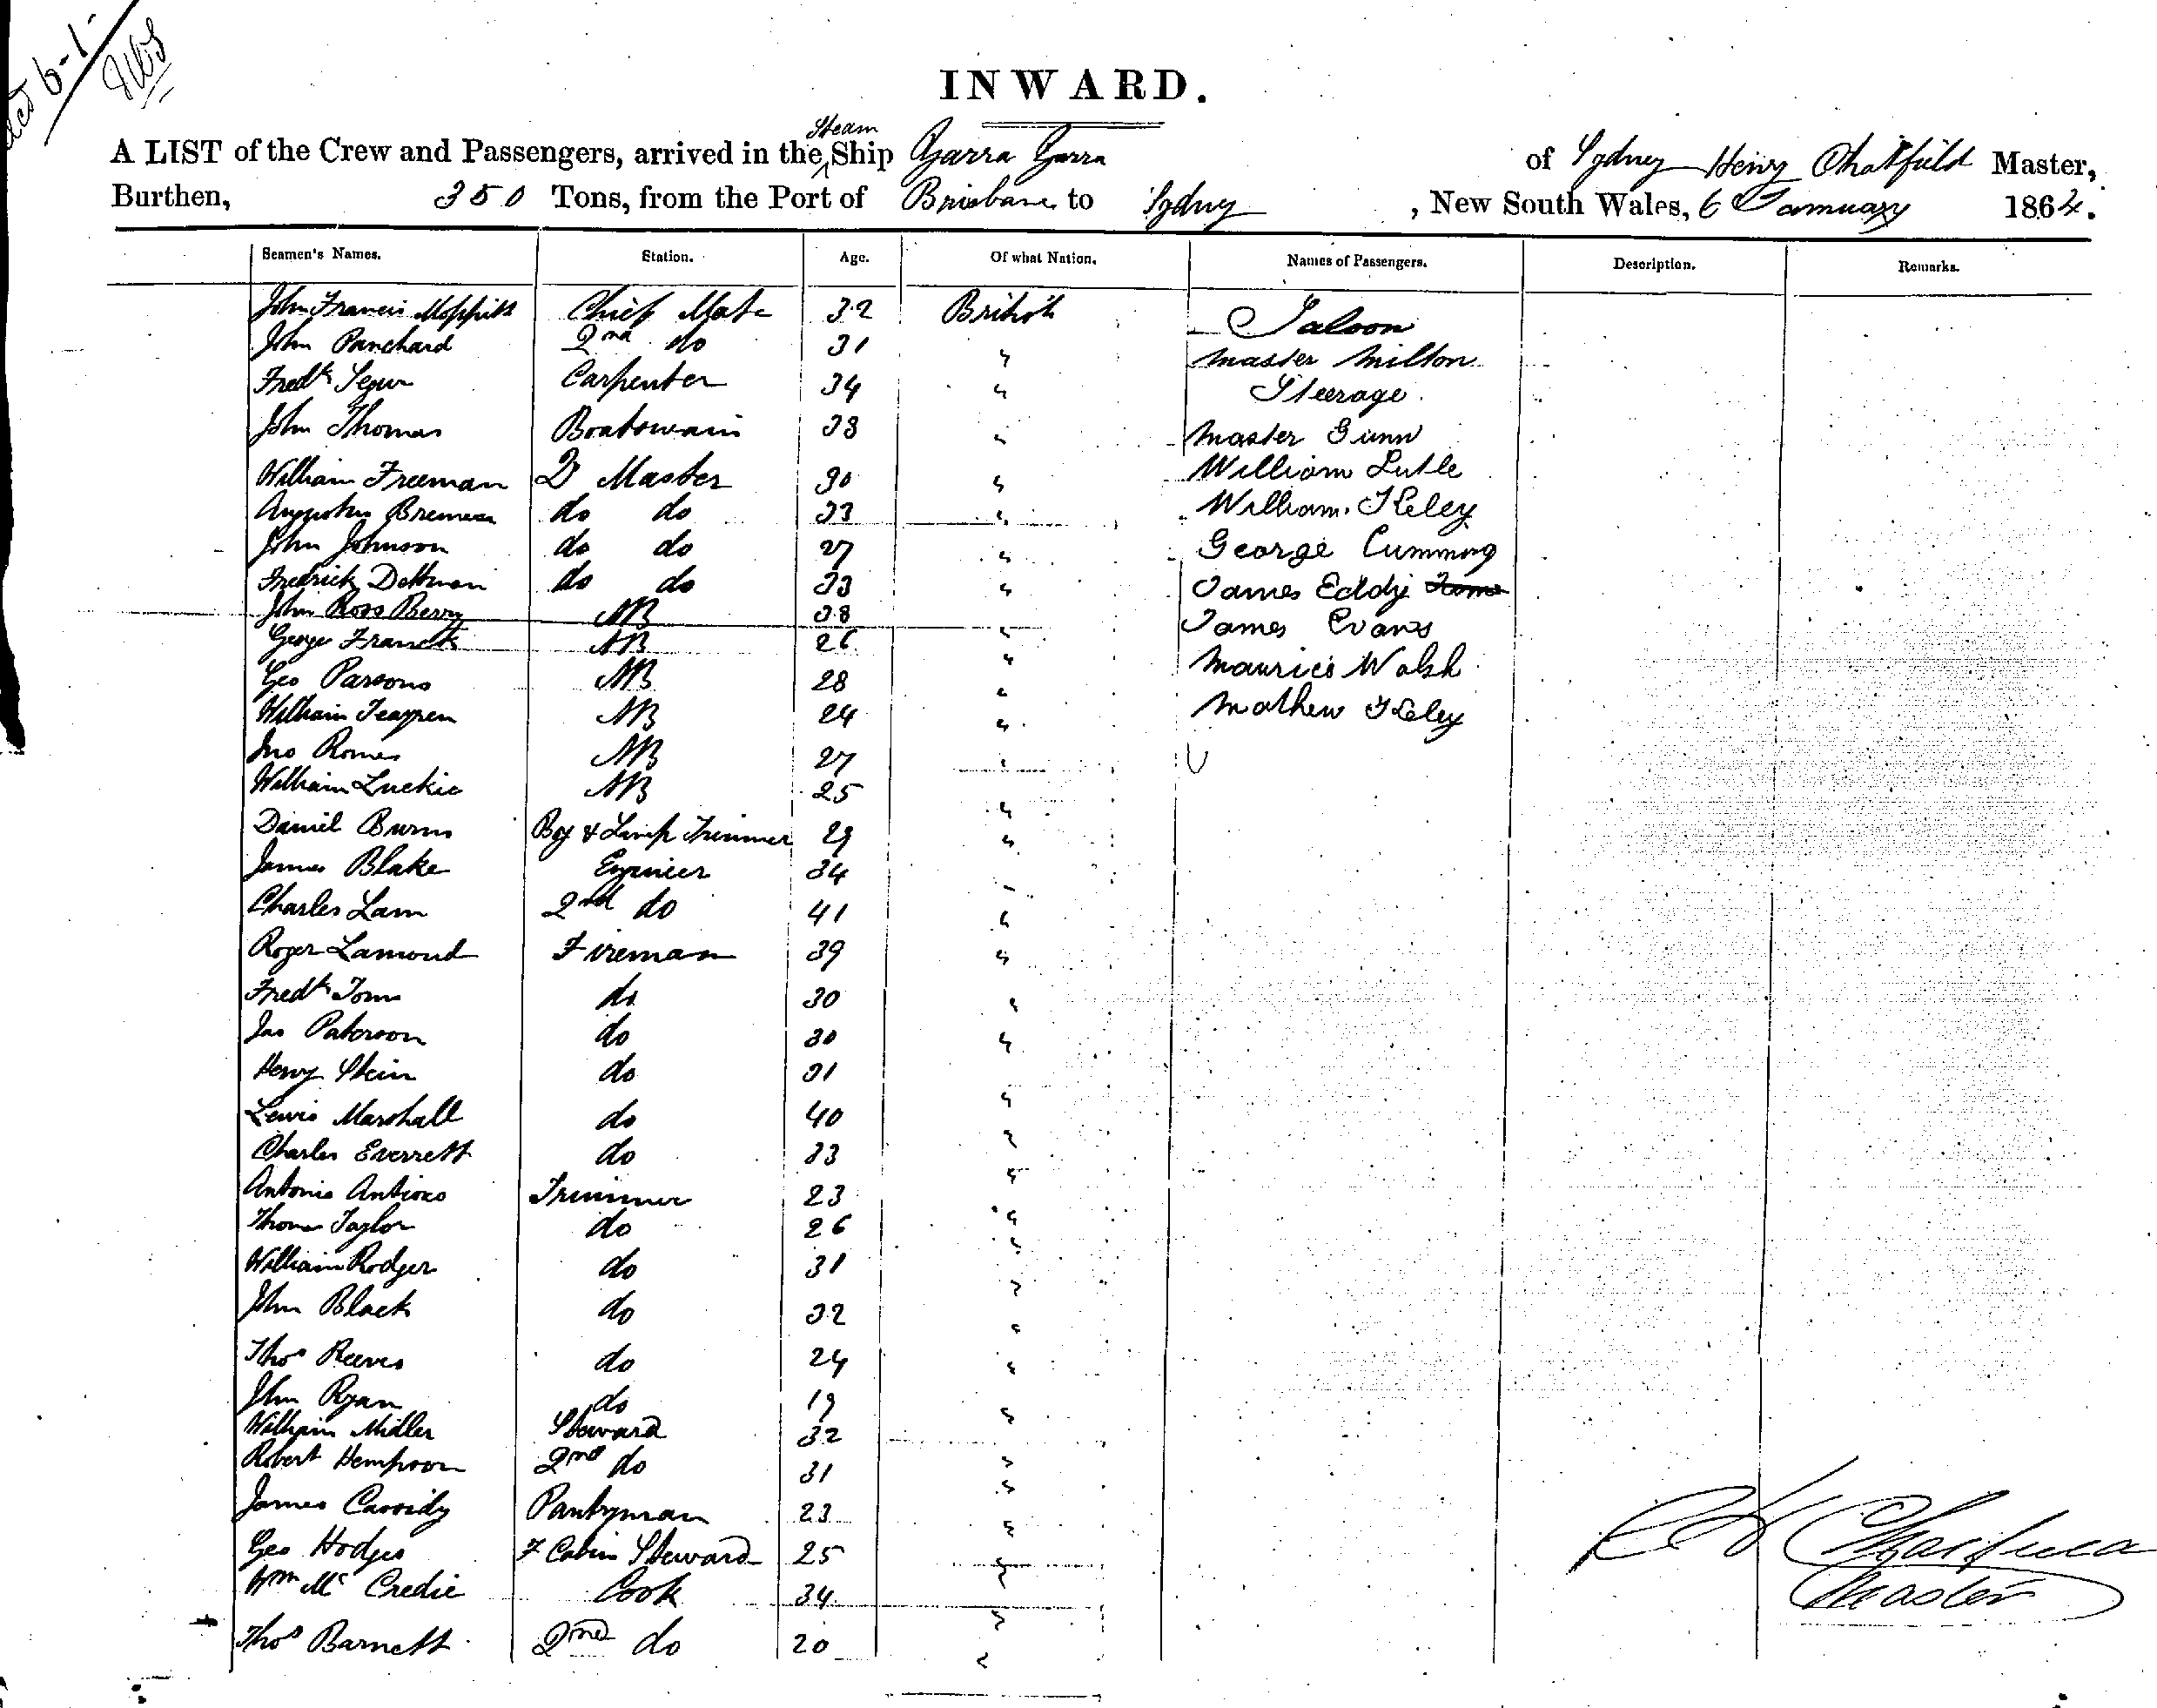 6-1-
INWARD.
A LIST of the Crew and Passengers, arrived in the Steam Ship Yarra Yarra of Sydney Henry Chatfield Master,
Burthen, 350 Tons, from the Port of Brisbane to Sydney, New South Wales, 6 January 1864.
Seamen's Names. Station. Age. Of what Nation. Names of Passengers. Description. Remarks.
John Francis Chief Mate 32 British Saloon
John Panchard 2nd do 31 " Master Milton
Fredk Carpenter 34 " Steerage
John Thomas Boatswain 33 " Master Gunn
William Freeman Q Master 30 " William
Augustus do do 33 " William
John Johnson do do 27 " George Cumming
Fredrick Dettman do do 33 " James Eddy
John Ross Berry AB 38 James Evans
George AB 26 " Maurice Walsh
Geo Parsons AB 28 " Mathew
William AB 24 "
Jno AB 27 "
William Luckie AB 25 "
Daniel Burns Boy & Lamp Trimmer 29 "
James Blake Engineer 34 "
Charles Lam 2nd do 41 "
Roger Lamond Fireman 39 "
Fredk do 30 "
Jas Paterson do 30 "
Henry Stein do 31 "
Lewis Marshall do 40 "
Charles Everrett do 33 "
Antonio Trimmer 23 "
Thomas Taylor do 26 "
William Rodger do 31 "
John Black do 32 "
Thos Reeves do 24 "
John Ryan do 19 "
William Midler Steward 32 "
Robert 2nd do 31 "
James Cassidy Pantryman 23 "
Geo Hodges F Cabin Steward 25 "
Wm McCredie Cook 34 "
Thos Barnett 2nd do 20 "
H Chatfield
Master